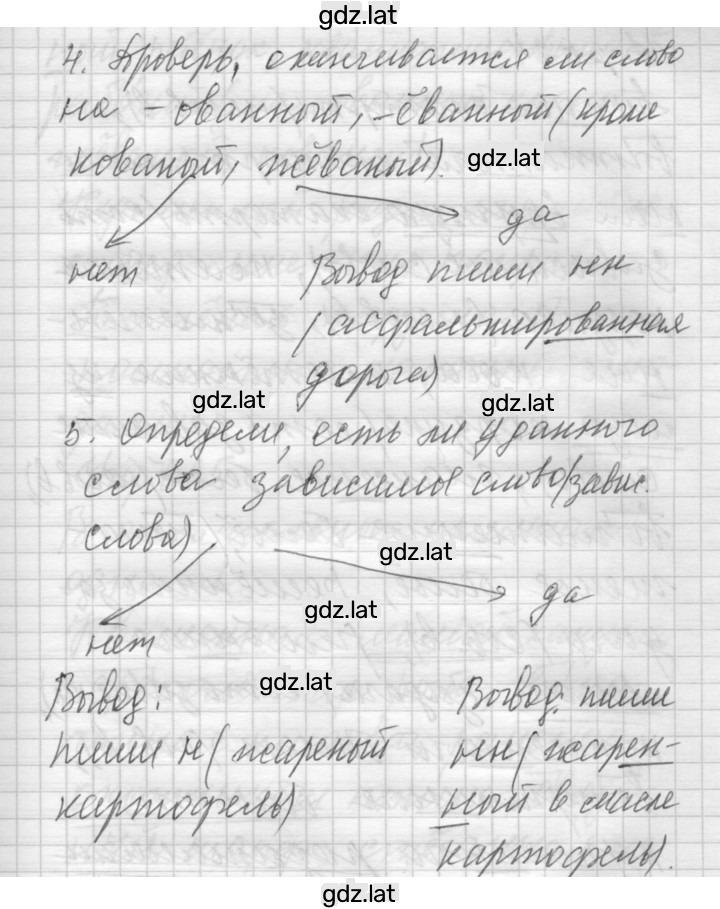 gdz.lat
4. Проверь, оканчивается ли слово
на -ованный, -ёванный (кроме
кованый, жёваный).
gdz.lat
да
нет
Вывод пиши нн
(асфальтированная
дорога)
gdz.lat
gdz.lat
5. Определи, есть ли у данного
слова зависимое слово (завис.
слова)
gdz.lat
gdz.lat
да
нет
gdz.lat
Вывод:
пиши н (жареный
картофель)
Вывод: пиши
нн (жарен-
ный в масле
картофель).
gdz.lat